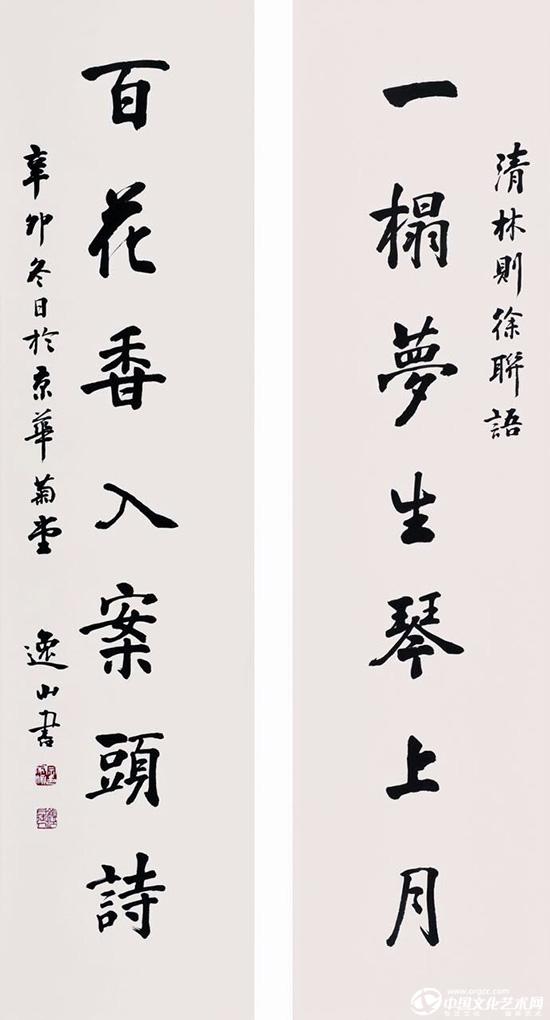 清林則徐聯語
一榻夢生琴上月
百花香入案頭詩
辛卯冬日於京華菊堂
逸山書
www.orgcc.com
中国文化艺术网